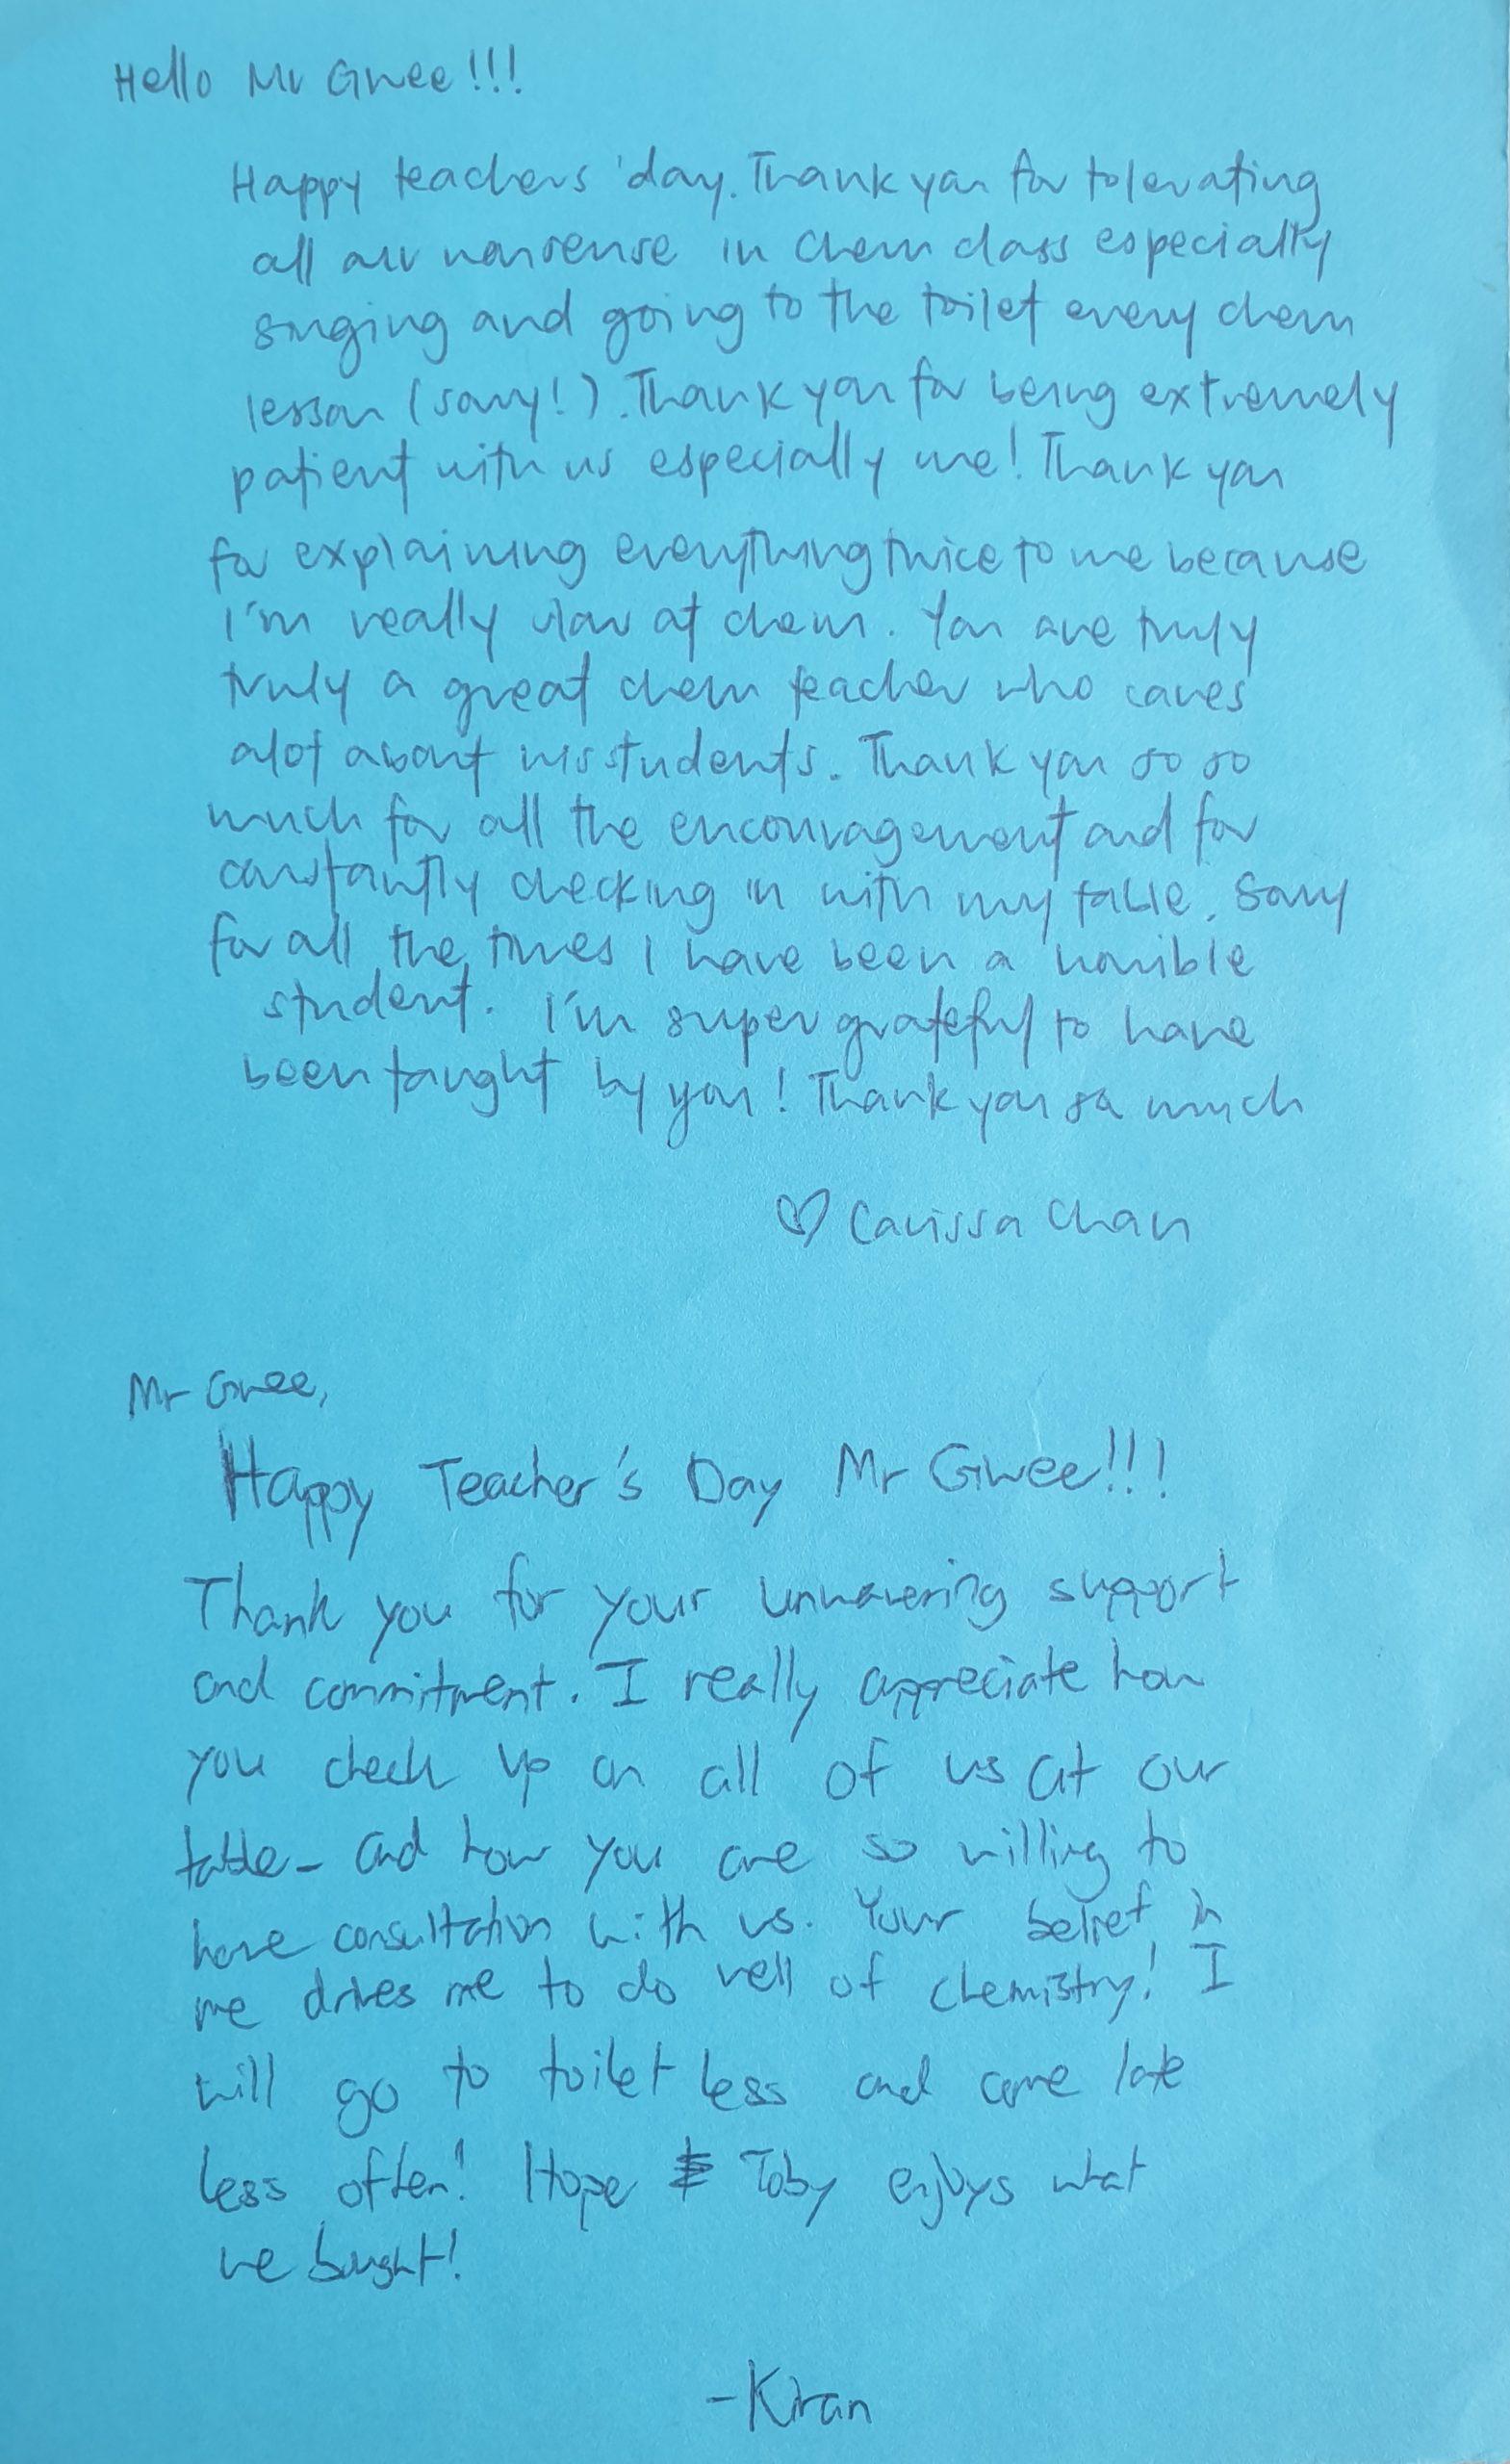 Hello Mr Gwee!!!
Happy teachers 'day. Thank you for tolerating
all our nonsense in chem class especially
singing and going to the toilet every chem
lesson (sorry!). Thank you for being extremely
patient with us especially me! Thank you
for explaining everything twice to me because
I'm really slow at chem. You are truly
truly a great chem teacher who cares
alot about his students. Thank you so so
much for all the encouragement and for
constantly checking in with my table. Sorry
for all the times I have been a horrible
student. I'm super grateful to have
been taught by you! Thank you so much
♡ Carissa Chan
Mr Gwee,
Happy Teacher's Day Mr Gwee!!!
Thank you for your unwavering support
and commitment. I really appreciate how
you check up on all of us at our
table - and how you are so willing to
have consultation with us. Your belief in
me drives me to do well of chemistry! I
will go to toilet less and come late
less often! Hope Toby enjoys what
we bought!
-Kiran